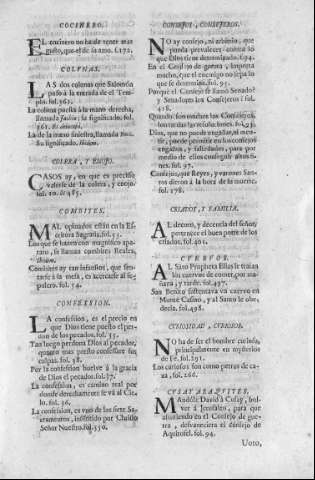 COCINERO.
EL cocinero no ha de tener mas
gusto, que el de su amo. f.172.
COLUNAS.
LAS dos colunas que Salomón
puso à la entrada de el Tem-
plo. fol. 362.
La coluna puesta à la mano derecha,
llamada
su significado. fol.
361.
La de la mano siniestra, llamada
Su significado. ibidem.
COLERA, Y ENOJO.
CASOS ay, en que es preciso
valerse de la colera, y enojo.
fol. 10. & 485.
COMBITES.
MAL opinados están en la Es-
critura Sagrada, fol. 53.
Los que se hazen con magnifico apa-
rato, se llaman combites Reales,
ibidem.
Combites ay tan infaustos, que sen-
tarse à la mesa, es acercarse al se-
pulcro. fol. 54.
CONFESSION.
LA confession, es el precio en
que Dios tiene puesto el per-
don de los pecados. fol. 35.
Tan luego perdona Dios al pecador,
quanto mas presto confessare su
culpa. fol. 38.
Por la confession buelve à la gracia
de Dios el pecador. fol. 37.
La confession, es camino real por
donde derechamente se và al Cie-
lo. fol. 36.
La confession, es uno de los siete Sa-
cramentos, instituido por Christo
Señor Nuestro. fol. 350.
CONSEJOS, CONSEJEROS.
NO ay consejo, ni arbitrio, que
pueda prevalecer contra lo
que Dios tiene determinado. 694.
En el Consejo de guerra, importa
mucho, que el enemigo no sepa lo
que se determina. fol. 95.
Porquè el Consejo se llamò Senado?
y Senadores los Consejeros? fol.
418.
Quando son muchos los Consejeros,
fol. 95.
Dios, que no puede engañar, ni men-
tir, puede permitir en los consejos
engaños, y falsedades, para por
medio de ellos conseguir altos
fines. fol. 97.
Consejos, que Reyes, y varones San-
tos dieron à la hora de su muerte.
fol. 178.
CRIADOS, Y FAMILIA.
AL decoro, y decencia del señor,
pertenece el buen porte de los
criados. fol. 401.
CUERVOS.
AL Santo Propheta Elias le traìan
los cuervos de comer, por ma-
ñana, y tarde. fol. 497.
San Benito sustentava un cuervo en
Monte Casino, y al Santo le obe-
decìa. fol. 498.
CURIOSIDAD, CURIOSOS.
NO ha de ser el hombre curioso,
principalmente en mysterios
de Fè. fol. 291.
Los curiosos son como perros de ca-
za. fol. 266.
CUSAY ARAQUITES.
MAndòle David à Cusay, bol-
ver à Jerusalèn, para que
assistiendo en el Consejo de guer-
ra, desvaneciera el consejo de
Aquitofel. fol. 94.
Uoto,